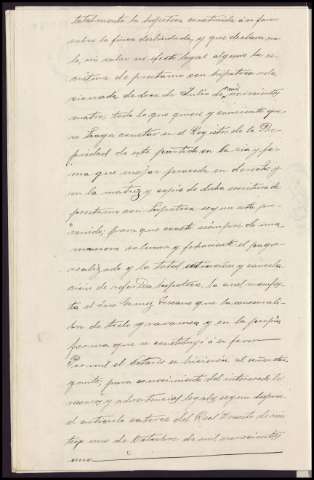 totalmente la hipoteca constituida á su favor
sobre la finca deslindada, y que declara nu-
la, sin valor ni efecto legal alguno la es-
critura de prestamo con hipoteca rela-
cionada de doce de Julio de mil novecientos
cuatro, todo lo que quiere y consiente que
se haga constar en el Registro de la Pro-
piedad de este partido en la via y for-
ma que mejor proceda en derecho, y
en la matriz y copia de dicha escritura de
prestamo con hipoteca
para que conste siempre de una
manera solemne y fehaciente el pago
realizado y la total extincion y cancela-
cion de referida hipoteca, la cual manifies-
ta el Don
bre de todo gravamen y en la propia
forma que se constituyó á su favor
Por mí el Notario se hicieron al señor otor-
gante, para conocimiento del interesado, las
reservas y advertencias legales, segun dispone
el articulo catorce del Real Decreto de vein-
tiuno de Octubre de mil novecientos
uno